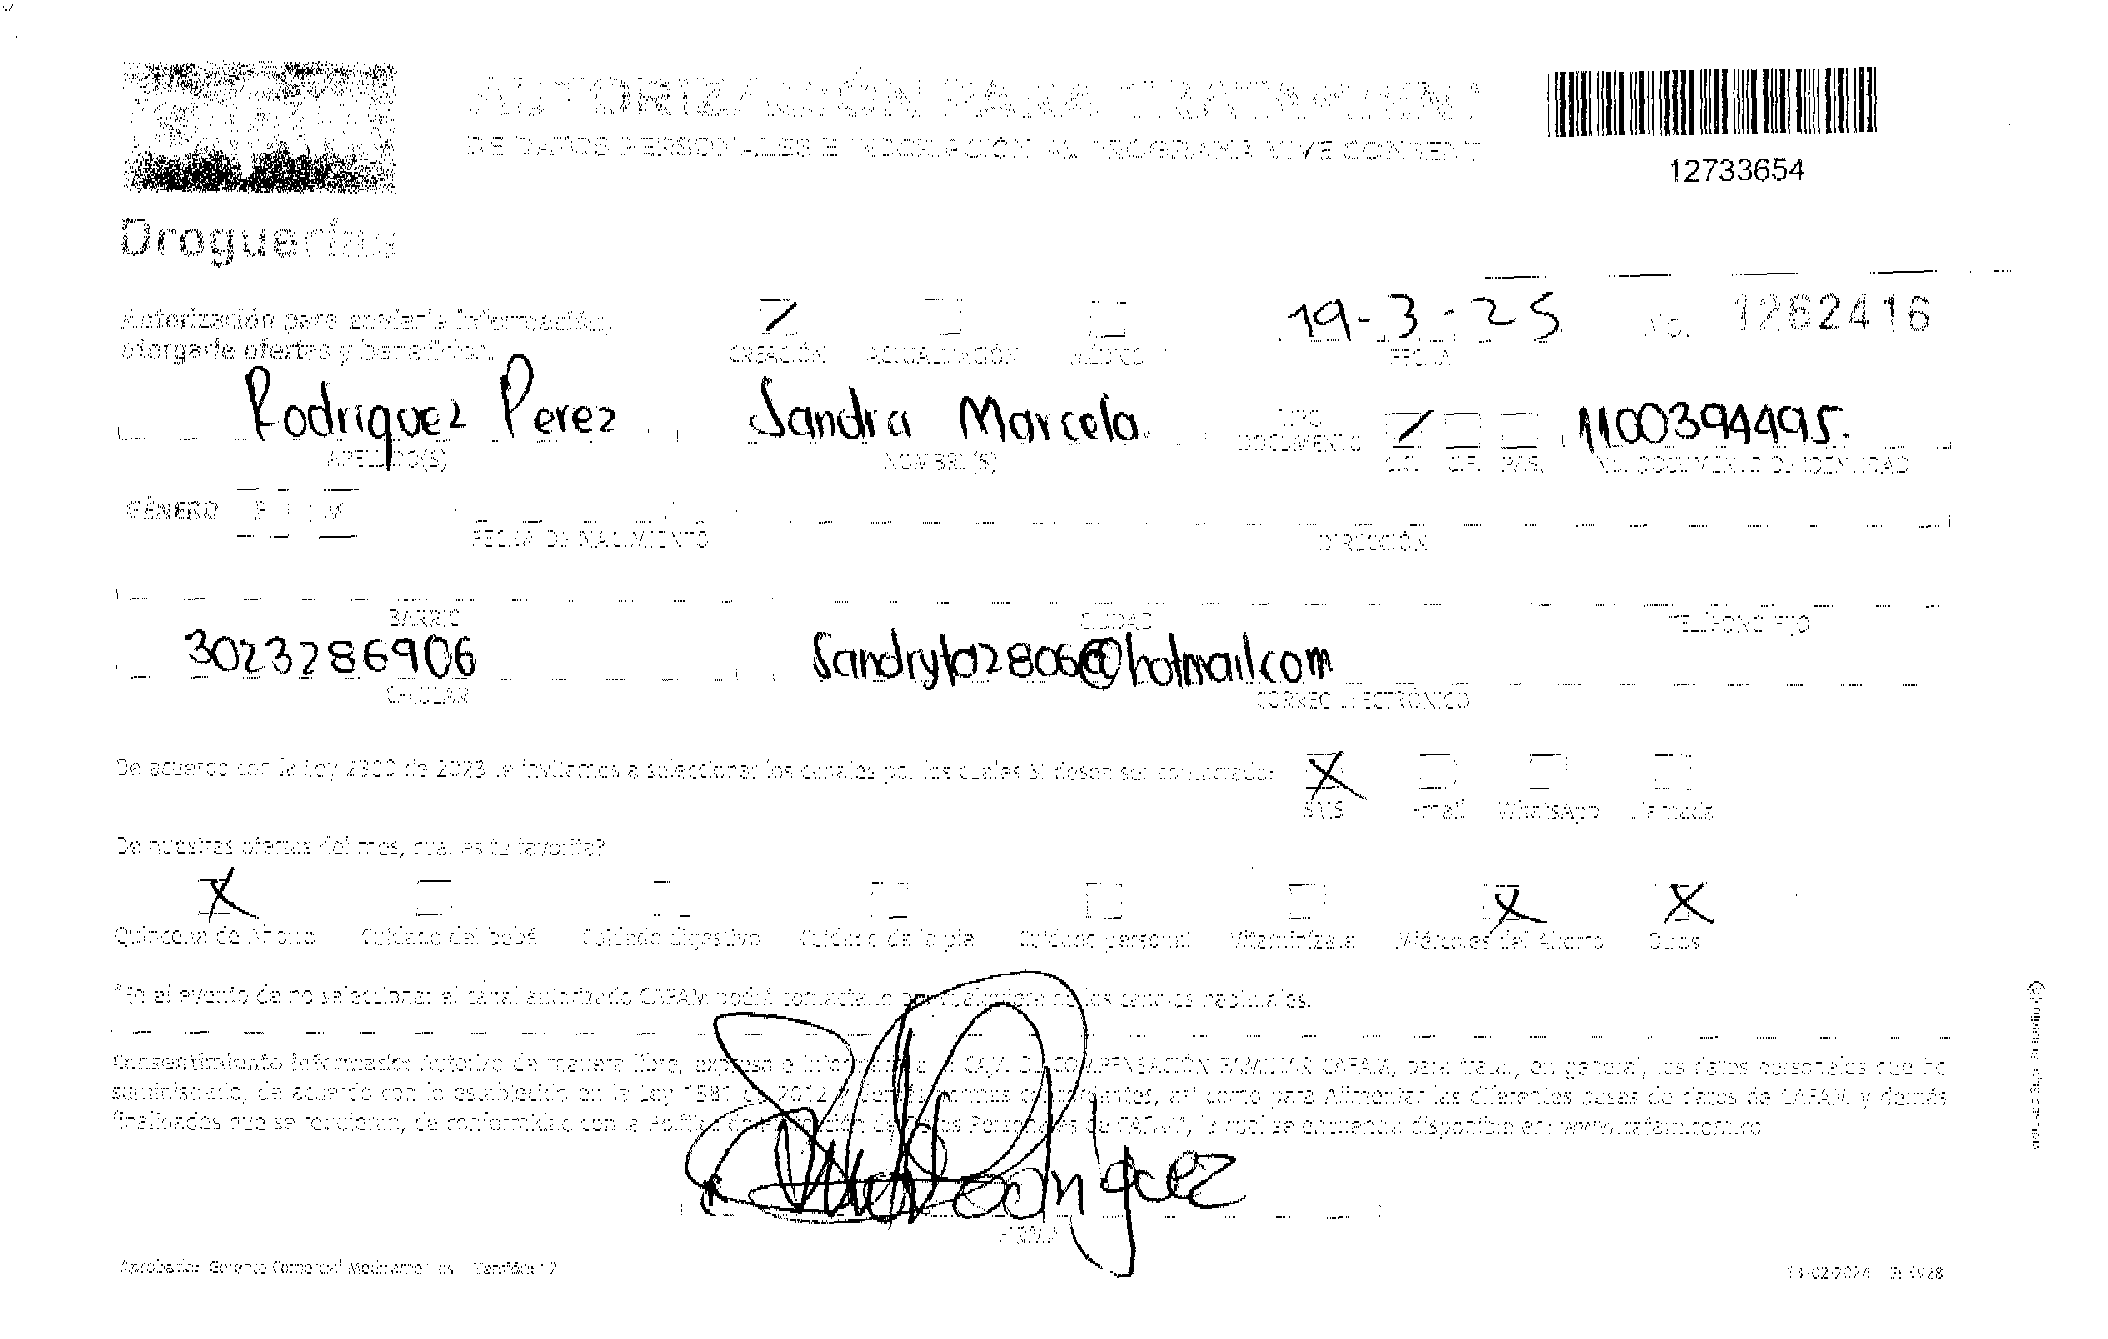 AUTORIZACIÓN PARA TRATAMIEN
DE DATOS PERSONALES E INSCRIPCIÓN AL PROGRAMA VIVE CONVENT
12733654
Droguerías
Autorización para enviarle información,
otorgarle ofertas y beneficios.
CREACIÓN ACTUALIZACIÓN
19-3-25
FECHA
No. 1262416
Rodriguez Perez
APELLIDO(S)
Sandra Marcela
NOMBRE(S)
TIPO
DOCUMENTO
C.C. C.E. PAS.
1100394495.
No. DOCUMENTO DE IDENTIDAD
GÉNERO F M
FECHA DE NACIMIENTO
DIRECCIÓN
BARRIO
CIUDAD
TELÉFONO FIJO
3023286906
CELULAR
Sandryto2806@hotmail.com
CORREO ELECTRÓNICO
De acuerdo con la Ley 2300 de 2023 te invitamos a seleccionar los canales por los cuales si desea ser contactado:
SMS E-mail WhatsApp Llamada
De nuestras ofertas del mes, cual es tu favorita?
Quincena de Ahorro Cuidado del bebé Cuidado digestivo Cuidado de la piel Cuidado personal Vitamínizate Miércoles del Ahorro Otros
*En el evento de no seleccionar el canal autorizado CAFAM podrá contactarlo por cualquiera de los canales habituales.
Consentimiento Informado: Autorizo de manera libre, expresa e informada a CAJA DE COMPENSACIÓN FAMILIAR CAFAM, para tratar, en general, los datos personales que he
suministrado, de acuerdo con lo establecido en la Ley 1581 de 2012 y demás normas concordantes, así como para Alimentar las diferentes bases de datos de CAFAM y demás
finalidades que se requieran, de conformidad con la Política de Protección de Datos Personales de CAFAM, la cual se encuentra disponible en: www.cafam.com.co
Rodriguez
FIRMA
Aprobado: Gerencia Comercial Medicamentos Versión: 12